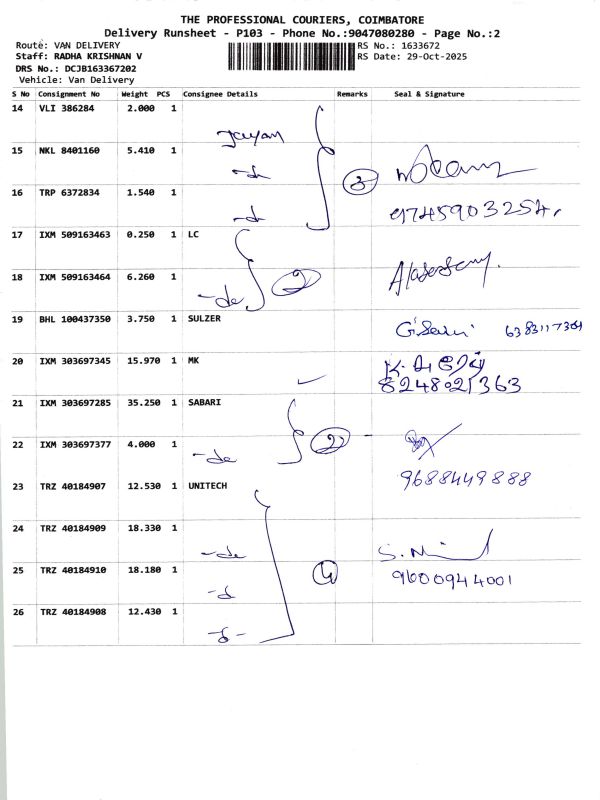 THE PROFESSIONAL COURIERS, COIMBATORE
Delivery Runsheet - P103 - Phone No.:9047080280 - Page No.:2
Route: VAN DELIVERY RS No.: 1633672
Staff: RADHA KRISHNAN V RS Date: 29-Oct-2025
DRS No.: DCJB163367202
Vehicle: Van Delivery
S No Consignment No Weight PCS Consignee Details Remarks Seal & Signature
14 VLI 386284 2.000 1
15 NKL 8401160 5.410 1 3
16 TRP 6372834 1.540 1 9745903254
17 IXM 509163463 0.250 1 LC
18 IXM 509163464 6.260 1 2
19 BHL 100437350 3.750 1 SULZER
20 IXM 303697345 15.970 1 MK
8248021363
21 IXM 303697285 35.250 1 SABARI
22 IXM 303697377 4.000 1 2
23 TRZ 40184907 12.530 1 UNITECH 9688449888
24 TRZ 40184909 18.330 1
25 TRZ 40184910 18.180 1 4 9600944001
26 TRZ 40184908 12.430 1